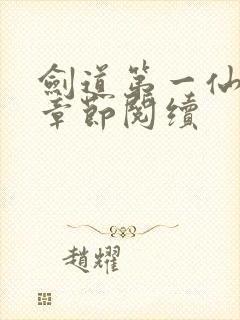 劍道第一仙
章節閱續
趙耀